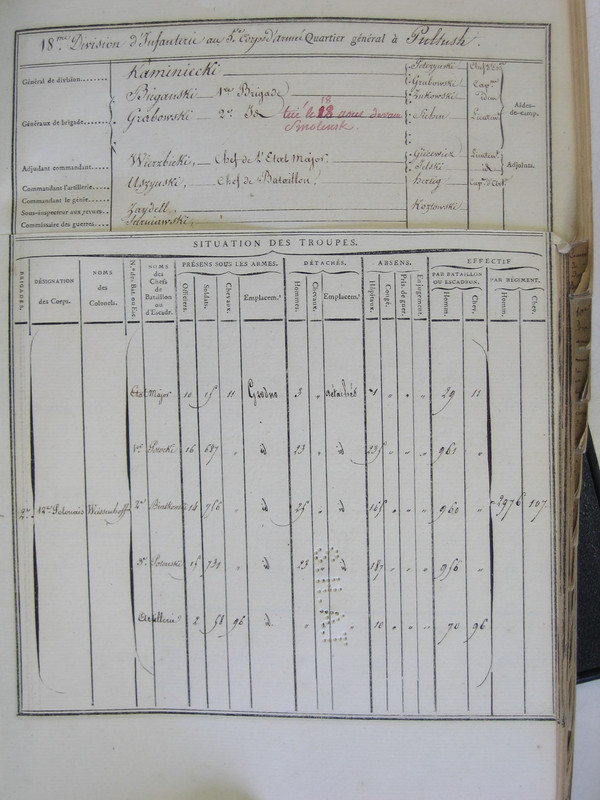 18.me Division d'Infanterie au 5.me Corps d'armée Quartier général à Pultusk.
Général de division....... Kaminiecki Chef d'Esc.
Grabowski Cap.ne
Généraux de brigade....... Biganski 1.re Brigade Zukowski idem Aides-de-camp.
Grabowski 2.e Id tué le 18 aout devant Smolensk.
18
Adjudant commandant..... Wierzbicki, Chef de l'Etat Major. Giedewicz Lieuten.t Adjoints.
id
Commandant l'artillerie.... Uszynski, Chef de Bataillon. Hertig Cap. d'Art.
Commandant le génie.....
Sous-inspecteur aux revues... Zaydell, Kozlowski
Commissaire des guerres...
SITUATION DES TROUPES.
BRIGADES. DÉSIGNATION des Corps. NOMS des Colonels. N.os des Bat. ou Esc. NOMS des Chefs de Bataillon ou d'Escadr. PRÉSENS SOUS LES ARMES. DÉTACHÉS. ABSENS. EFFECTIF
PAR BATAILLON OU ESCADRON. PAR RÉGIMENT.
Officiers. Soldats. Chevaux. Emplacem.t Hommes. Chevaux. Emplacem.t Hôpitaux. Congé. Pris. de guer. Enjugement. Homm. Chev. Homm. Chev.
Etat Major 10 15 11 Grodno 3 " détachés 1 " " " 29 11
1.er 16 687 " id 23 " id 235 " " " 961 "
2.e 12.e Polonais Weissenhoff 2.e 14 756 " id 25 " id 165 " " " 960 " 2976 107
3.e 15 731 " id 23 " id 187 " " " 956 "
Artillerie 2 58 96 id " " 10 " " " 70 96